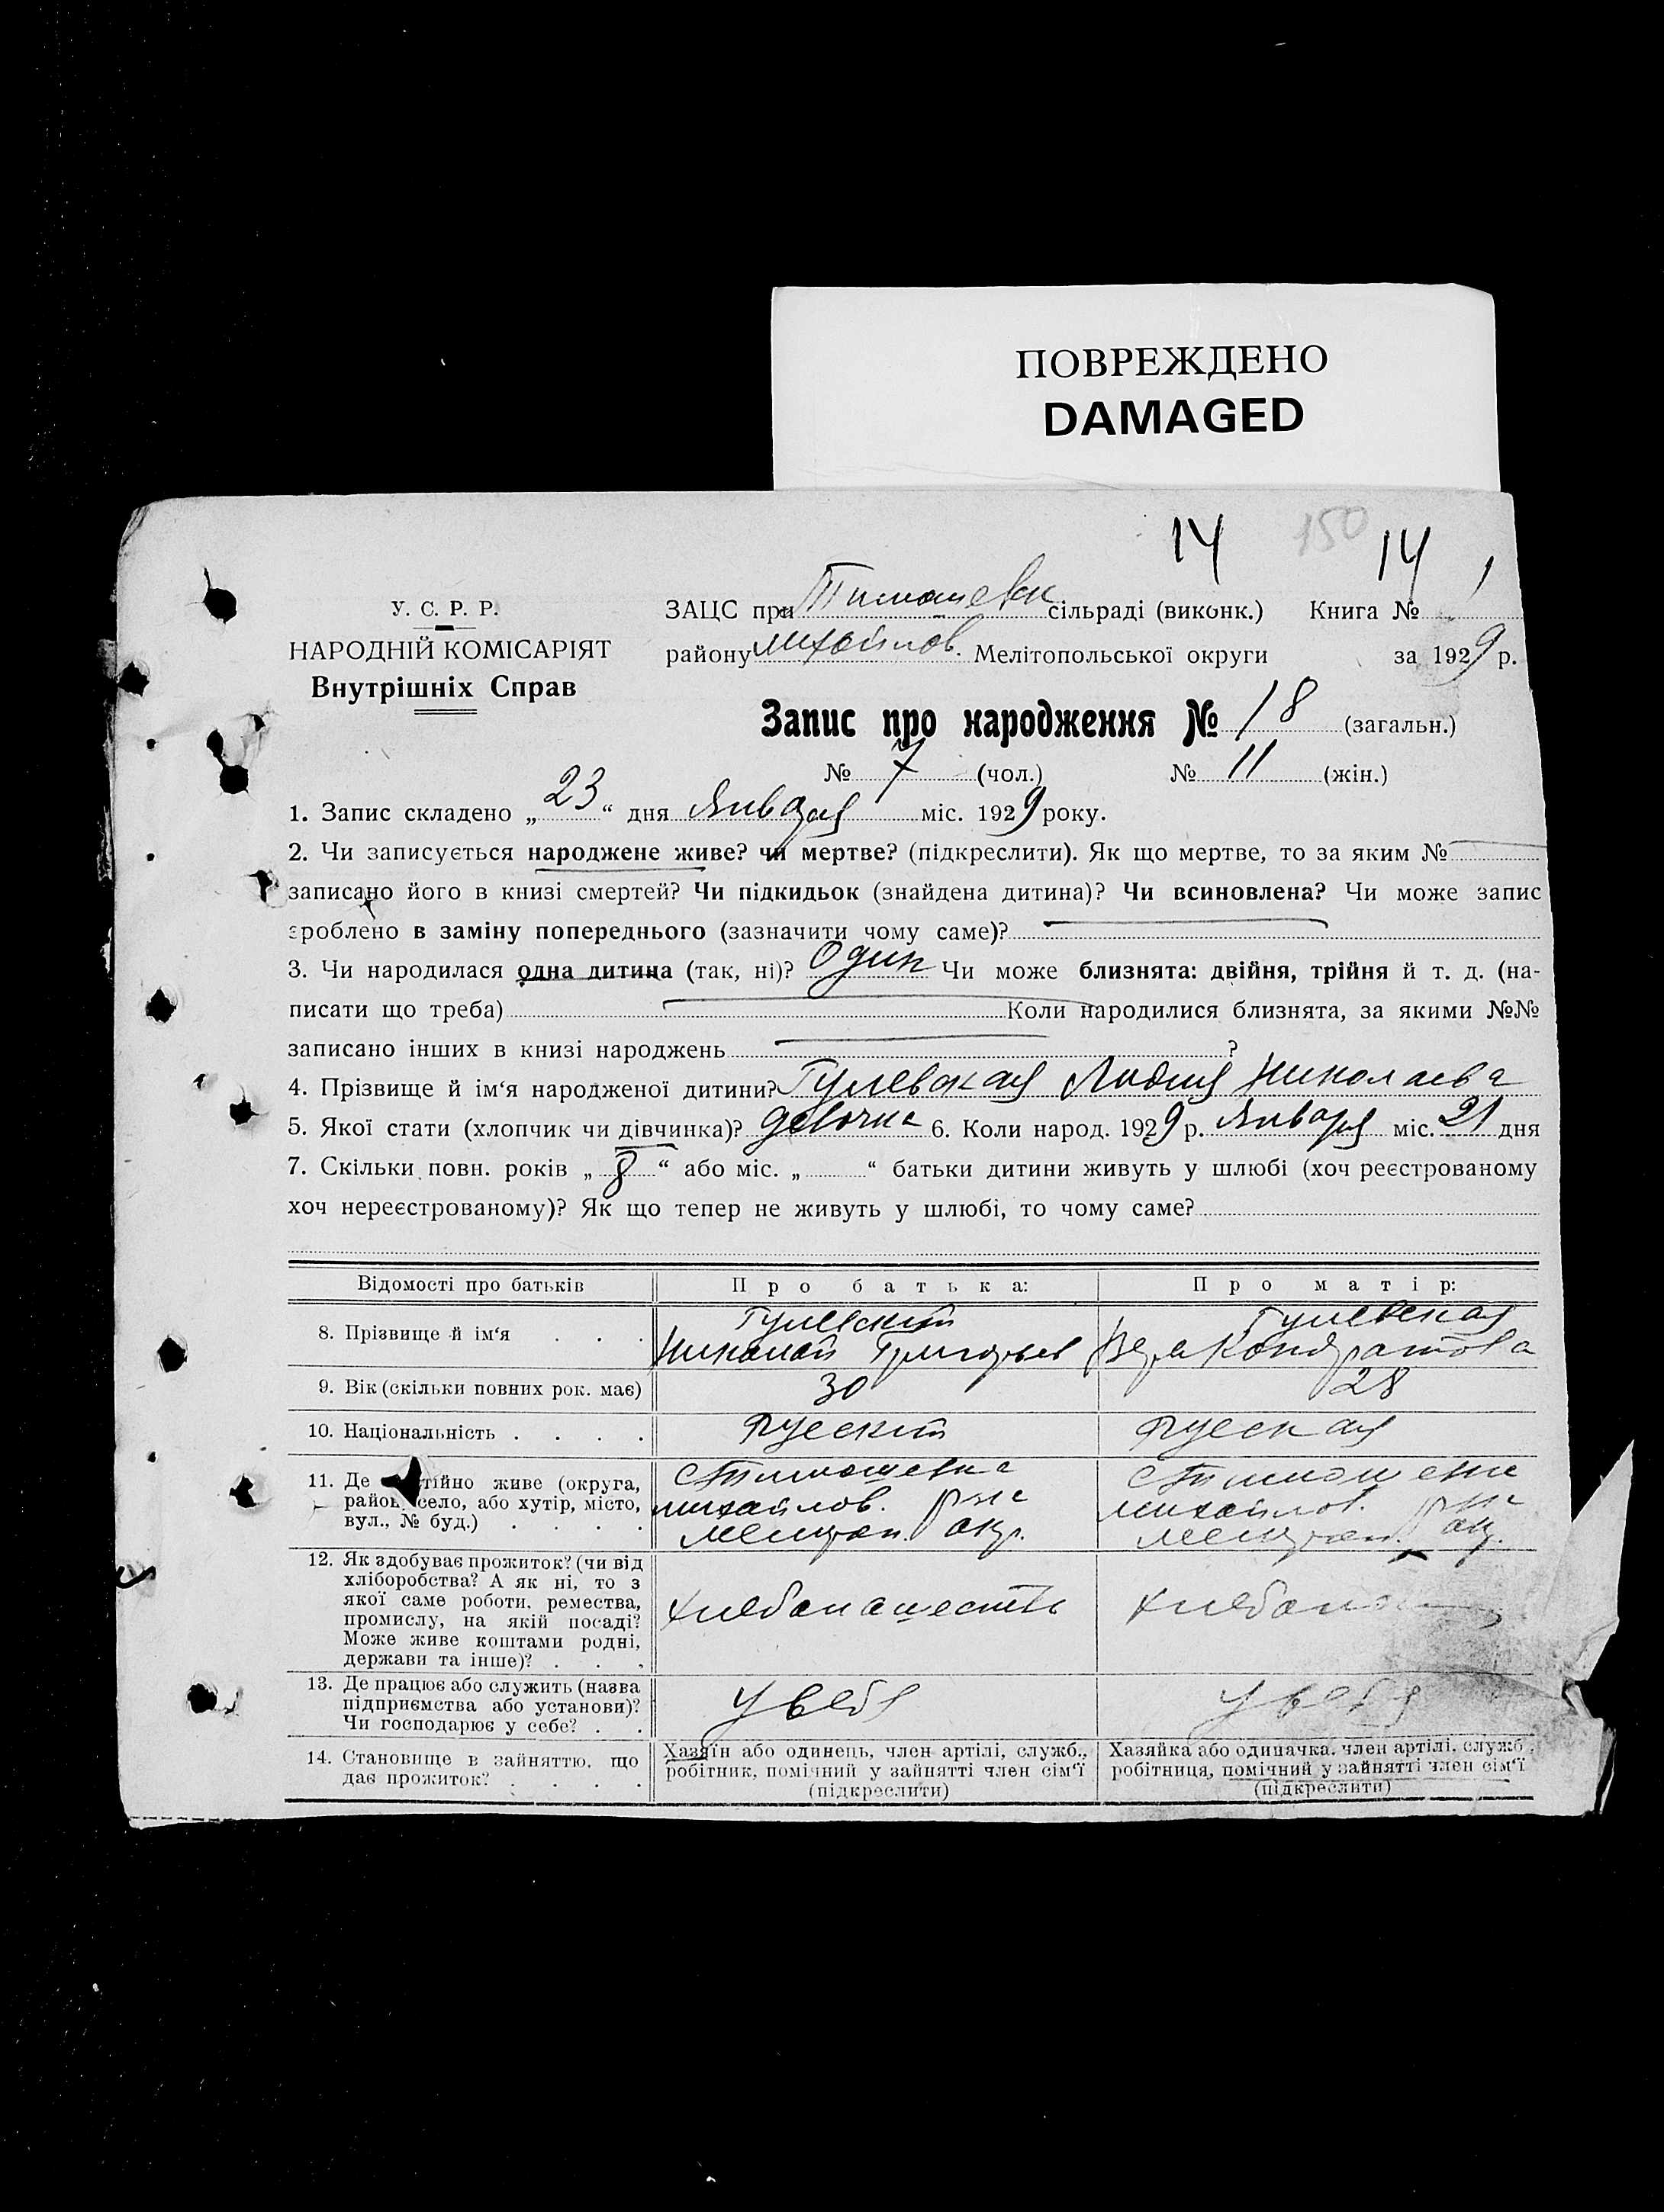 ПОВРЕЖДЕНО
DAMAGED
14 150 14
У. С. Р. Р.
НАРОДНІЙ КОМІСАРІЯТ
Внутрішніх Справ
ЗАЦС при Тимошевк сільраді (виконк.) Книга № 1
району михайлов. Мелітопольської округи за 1929 р.
Запис про народження № 18 (загальн.)
№ 7 (чол.) № 11 (жін.)
1. Запис складено „23“ дня Января міс. 1929 року.
2. Чи записується народжене живе? чи мертве? (підкреслити). Як що мертве, то за яким №
записано його в книзі смертей? Чи підкидьок (знайдена дитина)? Чи всиновлена? Чи може запис
зроблено в заміну попереднього (зазначити чому саме)?
3. Чи народилася одна дитина (так, ні)? Один Чи може близнята: двійня, трійня й т. д. (на-
писати що треба) Коли народилися близнята, за якими №№
записано інших в книзі народжень ?
4. Прізвище й ім‘я народженої дитини? Гулевская Лидия Николаева
5. Якої стати (хлопчик чи дівчинка)? девочка 6. Коли народ. 1929 р. Января міс. 21 дня
7. Скільки повн. років „8“ або міс. „ “ батьки дитини живуть у шлюбі (хоч реєстрованому
хоч нереєстрованому)? Як що тепер не живуть у шлюбі, то чому саме?
Відомості про батьків Про батька: Про матір:
8. Прізвище й ім‘я
Гулевский
Николай Григорьев
Гулевская
Вера Кондратова
9. Вік (скільки повних рок. має) 30 28
10. Національність Руский Руская
11. Де постійно живе (округа,
район, село, або хутір, місто,
вул., № буд.)
с Тимошевка
михайлов. рна
Мелитоп. окр.
с Тимошевка
михайлов. рна
Мелитоп. окр.
12. Як здобуває прожиток? (чи від
хліборобства? А як ні, то з
якої саме роботи, ремества,
промислу, на якій посаді?
Може живе коштами родні,
держави та інше)?
хлебопашеств
13. Де працює або служить (назва
підприємства або установи)?
Чи господарює у себе?
у себя
у себя
14. Становище в зайняттю, що
дає прожиток?
Хазяїн або одинець, член артілі, служб.,
робітник, помічний у зайнятті член сім‘ї
(підкреслити)
Хазяйка або одиначка, член артілі, служб.,
робітниця, помічний у зайнятті член сім‘ї
(підкреслити)